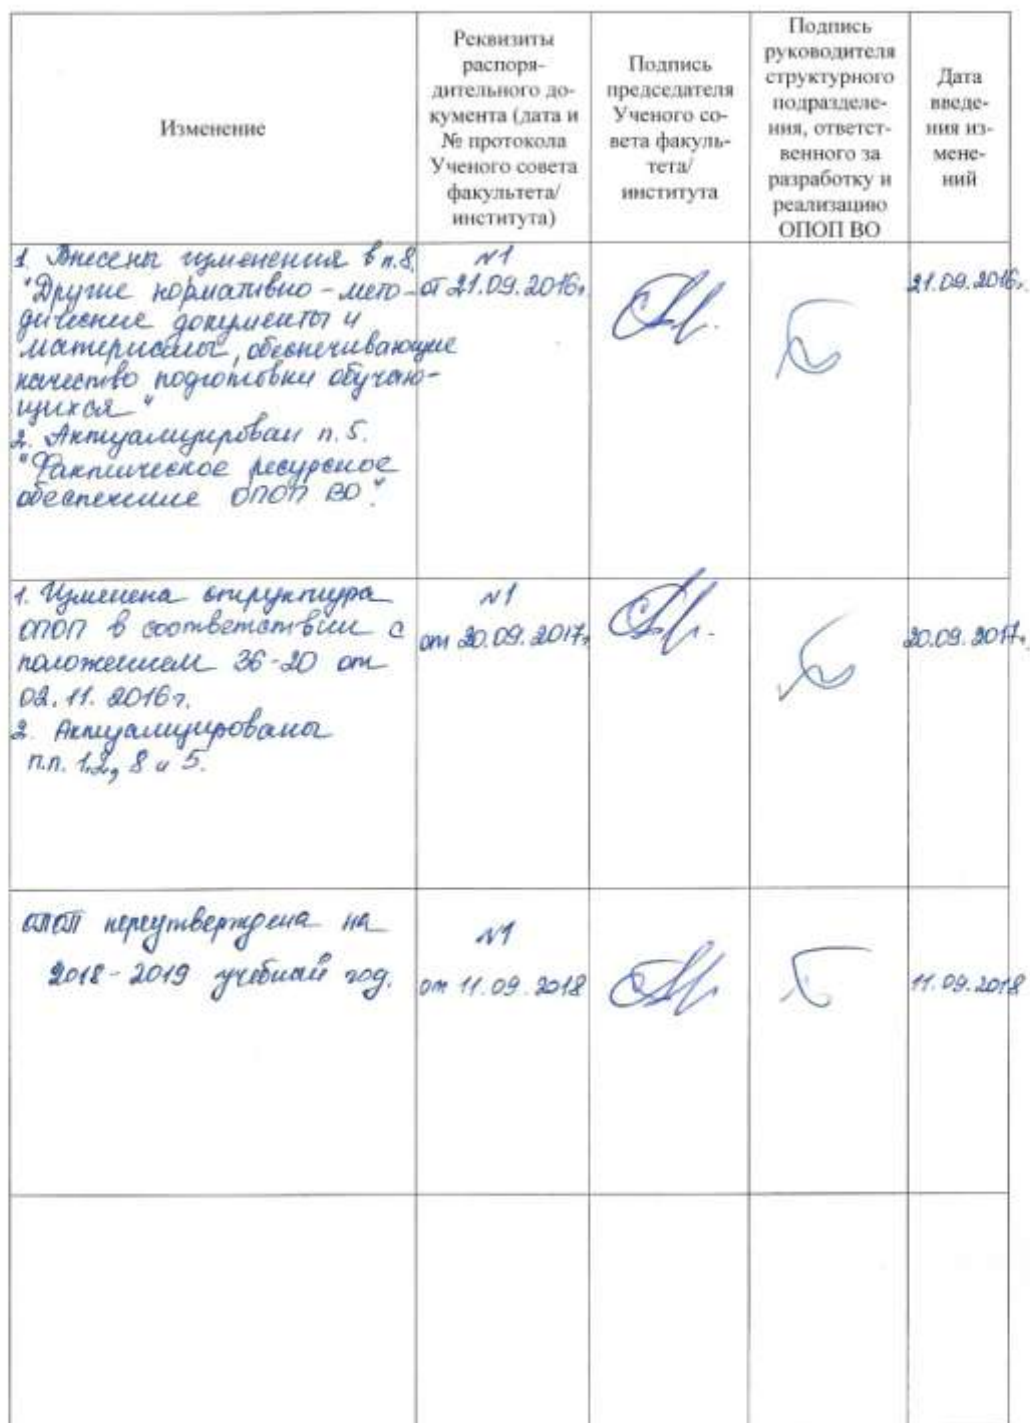 Изменение
Реквизиты
распоря-
дительного до-
кумента (дата и
№ протокола
Ученого совета
факультета/
института)
Подпись
председателя
Ученого со-
вета факуль-
тета/
института
Подпись
руководителя
структурного
подразделе-
ния, ответст-
венного за
разработку и
реализацию
ОПОП ВО
Дата
введе-
ния из-
мене-
ний
1. Внесены изменения в п.8.
"Другие нормативно-мето-
дические документы и
материалы, обеспечивающие
качество подготовки обучаю-
щихся"
2. Актуализирован п.5.
"Фактическое ресурсное
обеспечение ОПОП ВО".
№1
от 21.09.2016г.
21.09.2016г.
1. Изменена структура
ОПОП в соответствии с
положением 36-20 от
02.11.2016г.
2. Актуализированы
п.п. 1.2, 8 и 5.
№1
от 20.09.2017г.
20.09.2017г.
ОПОП переутверждена на
2018-2019 учебный год.
№1
от 11.09.2018
11.09.2018